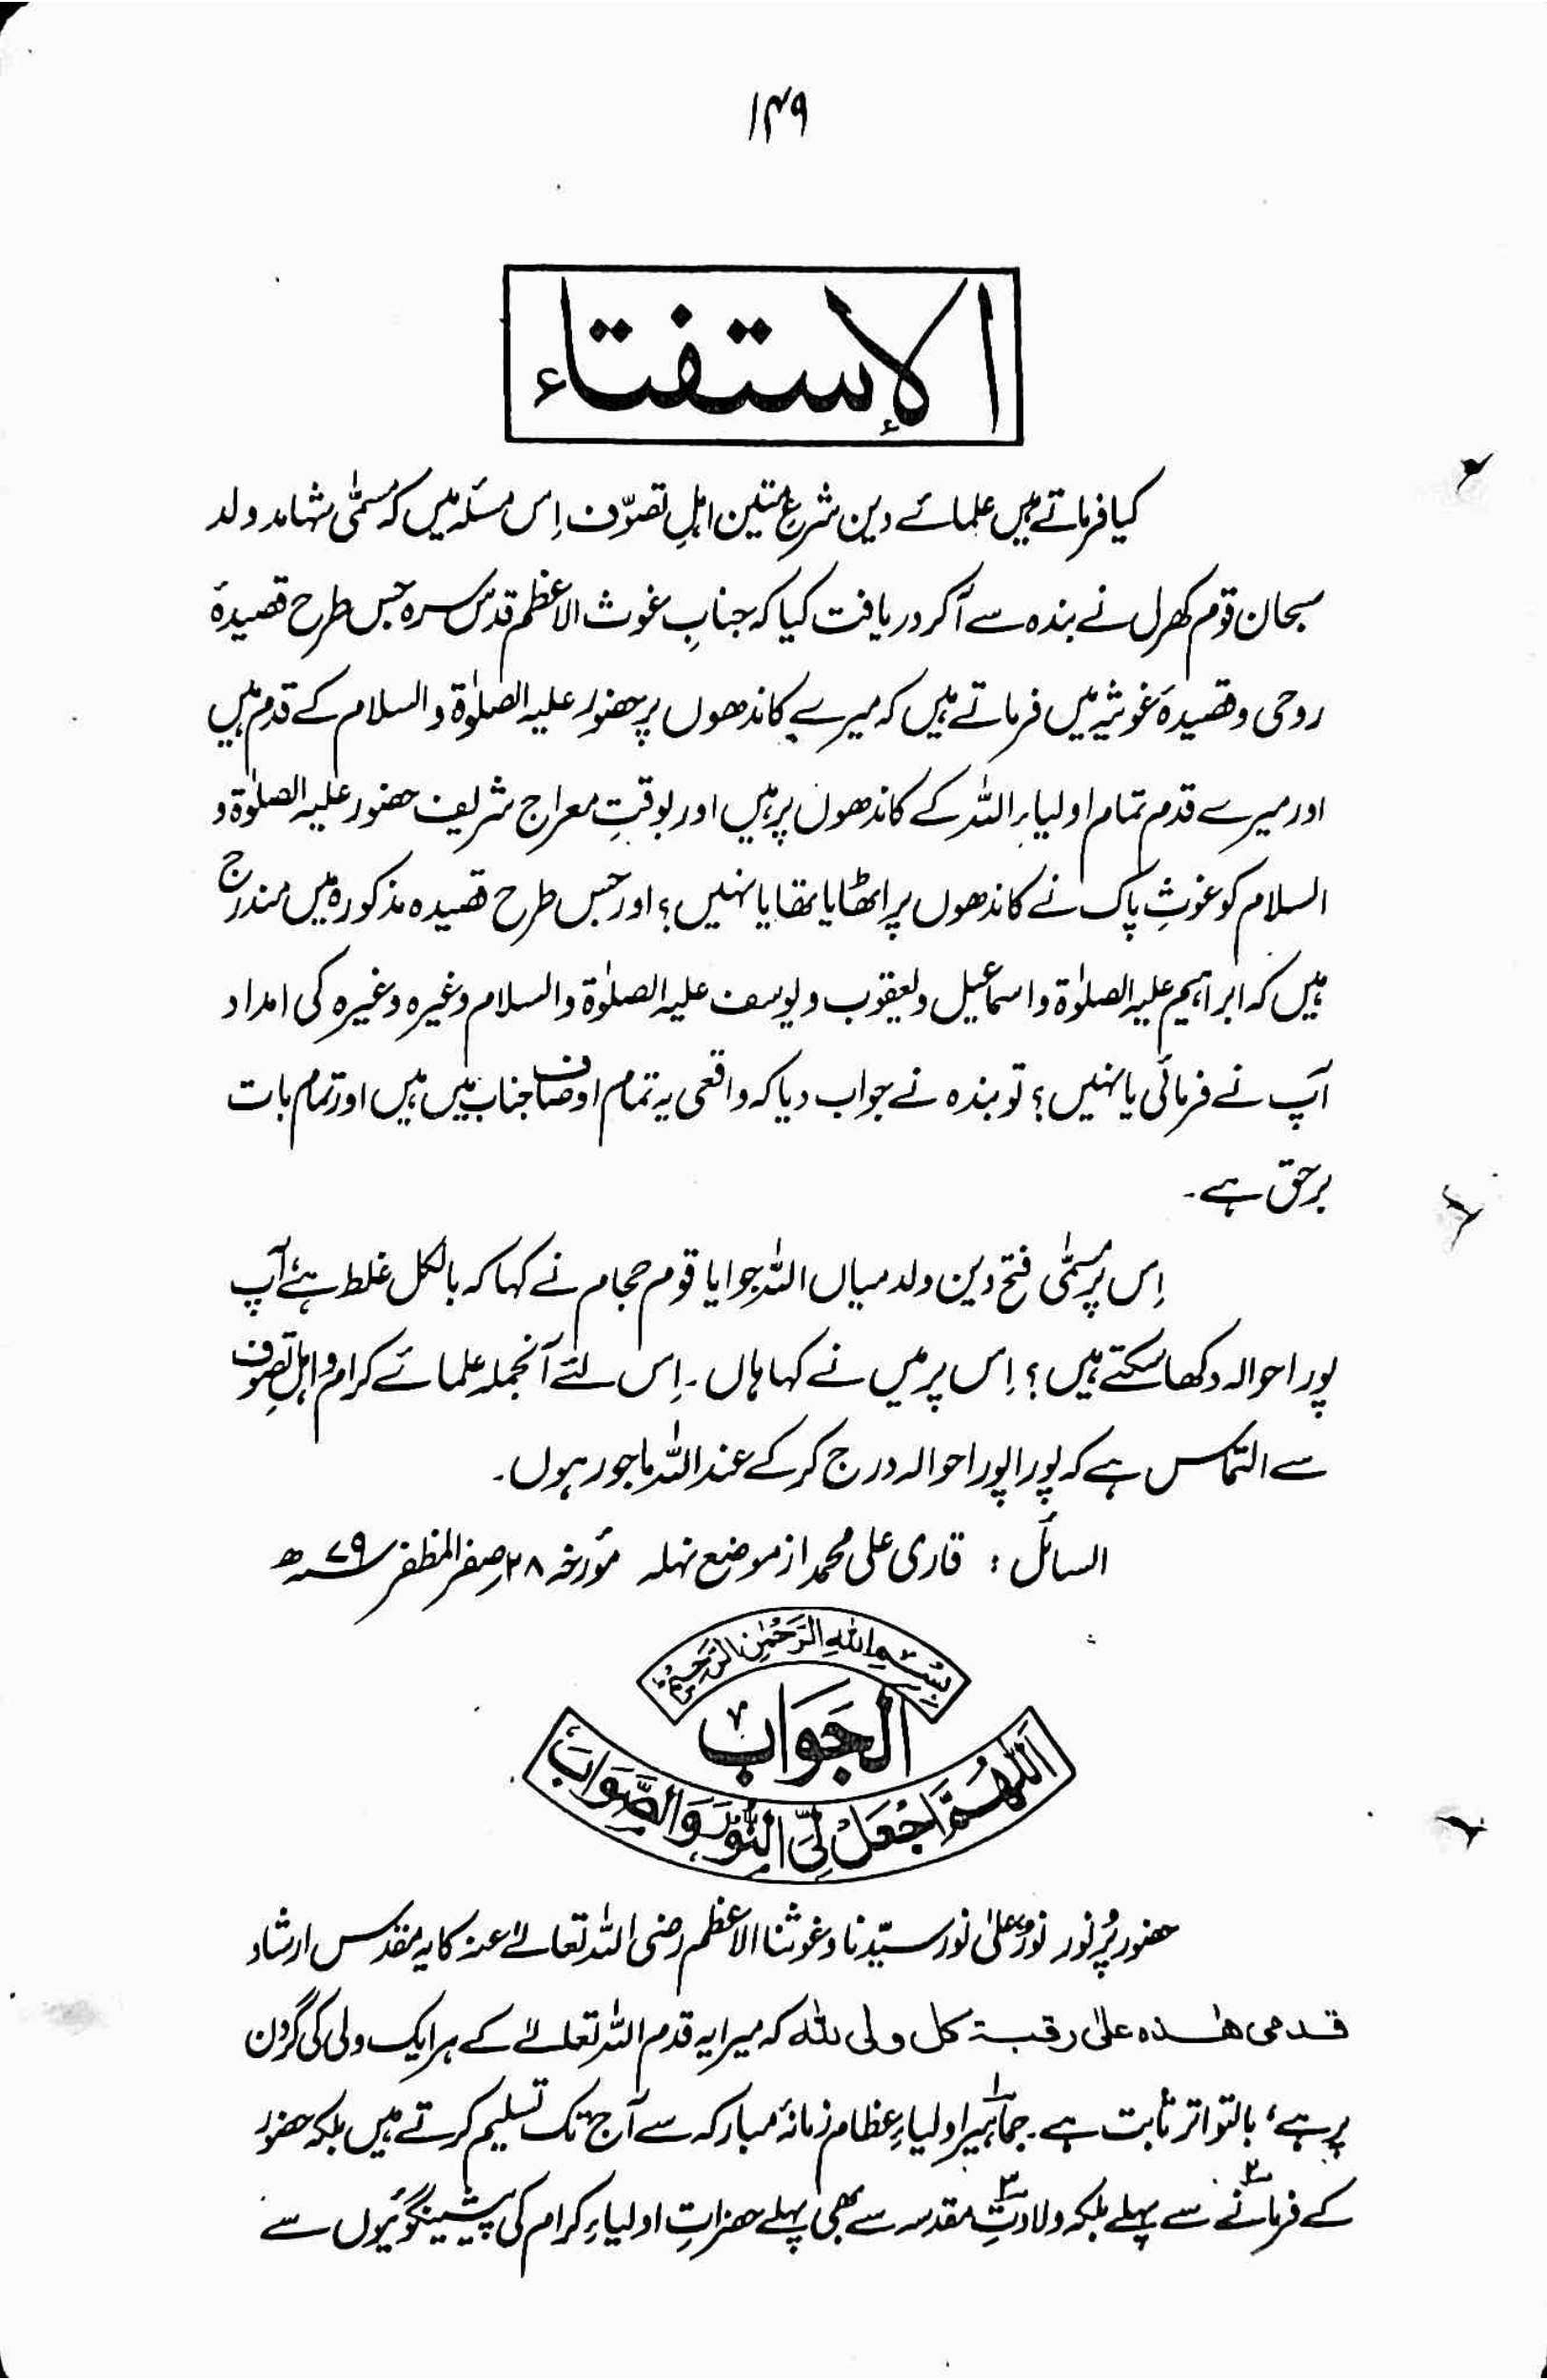 ۱۴۹
الاستفتاء
کیا فرماتے ہیں علمائے دین شرع متین اہلِ تصوّف اِس مسئلہ میں کہ مسمّٰی شہامد ولد
سبحان قوم کھرل نے بندہ سے آکر دریافت کیا کہ جنابِ غوث الاعظم قدس سرہ جس طرح قصیدۂ
روحی و قصیدۂ غوثیہ میں فرماتے ہیں کہ میرے کاندھوں پر حضور علیہ الصلوٰۃ والسلام کے قدم ہیں
اور میرے قدم تمام اولیاء اللہ کے کاندھوں پر ہیں اور بوقتِ معراج شریف حضور علیہ الصلوٰۃ و
السلام کو غوثِ پاک نے کاندھوں پر اٹھایا تھا یا نہیں؟ اور جس طرح قصیدہ مذکورہ میں مندرج
ہیں کہ ابراہیم علیہ الصلوٰۃ و اسماعیل و یعقوب و یوسف علیہ الصلوٰۃ والسلام وغیرہ وغیرہ کی امداد
آپ نے فرمائی یا نہیں؟ تو بندہ نے جواب دیا کہ واقعی یہ تمام اوصاف جناب میں ہیں اور تمام بات
برحق ہے۔
اِس پر مسمّٰی فتح دین ولد میاں اللہ جوایا قوم حجام نے کہا کہ بالکل غلط ہے، آپ
پورا حوالہ دکھا سکتے ہیں؟ اِس پر میں نے کہا ہاں۔ اِس لئے آنجملہ علمائے کرام و اہلِ تصوف
سے التماس ہے کہ پورا پورا حوالہ درج کر کے عند اللہ ماجور ہوں۔
السائل: قاری علی محمد از موضع نہلہ مؤرخہ ۲۸ صفر المظفر ۷۹ھ
بِسْمِ اللهِ الرَّحْمٰنِ الرَّحِيْمِ
اَلْجَوَابُ
اَللّٰهُمَّ اجْعَلْ لِّیَ النُّوْرَ وَالصَّوَابَ
حضور پُر نور نورٌ علیٰ نور سیّدنا و غوثنا الاعظم رضی اللہ تعالیٰ عنہ کا یہ مقدس ارشاد
قدمی ھٰذہ علیٰ رقبۃ کل ولی للہ کہ میرا یہ قدم اللہ تعالےٰ کے ہر ایک ولی کی گردن
پر ہے، بالتواتر ثابت ہے۔ جماہیر۱ اولیاءِ عظام زمانۂ مبارکہ سے آج تک تسلیم کرتے ہیں بلکہ حضور
کے فرمانے۲ سے پہلے بلکہ ولادتِ۳ مقدسہ سے بھی پہلے حضراتِ اولیاءِ کرام کی پیشینگوئیوں سے